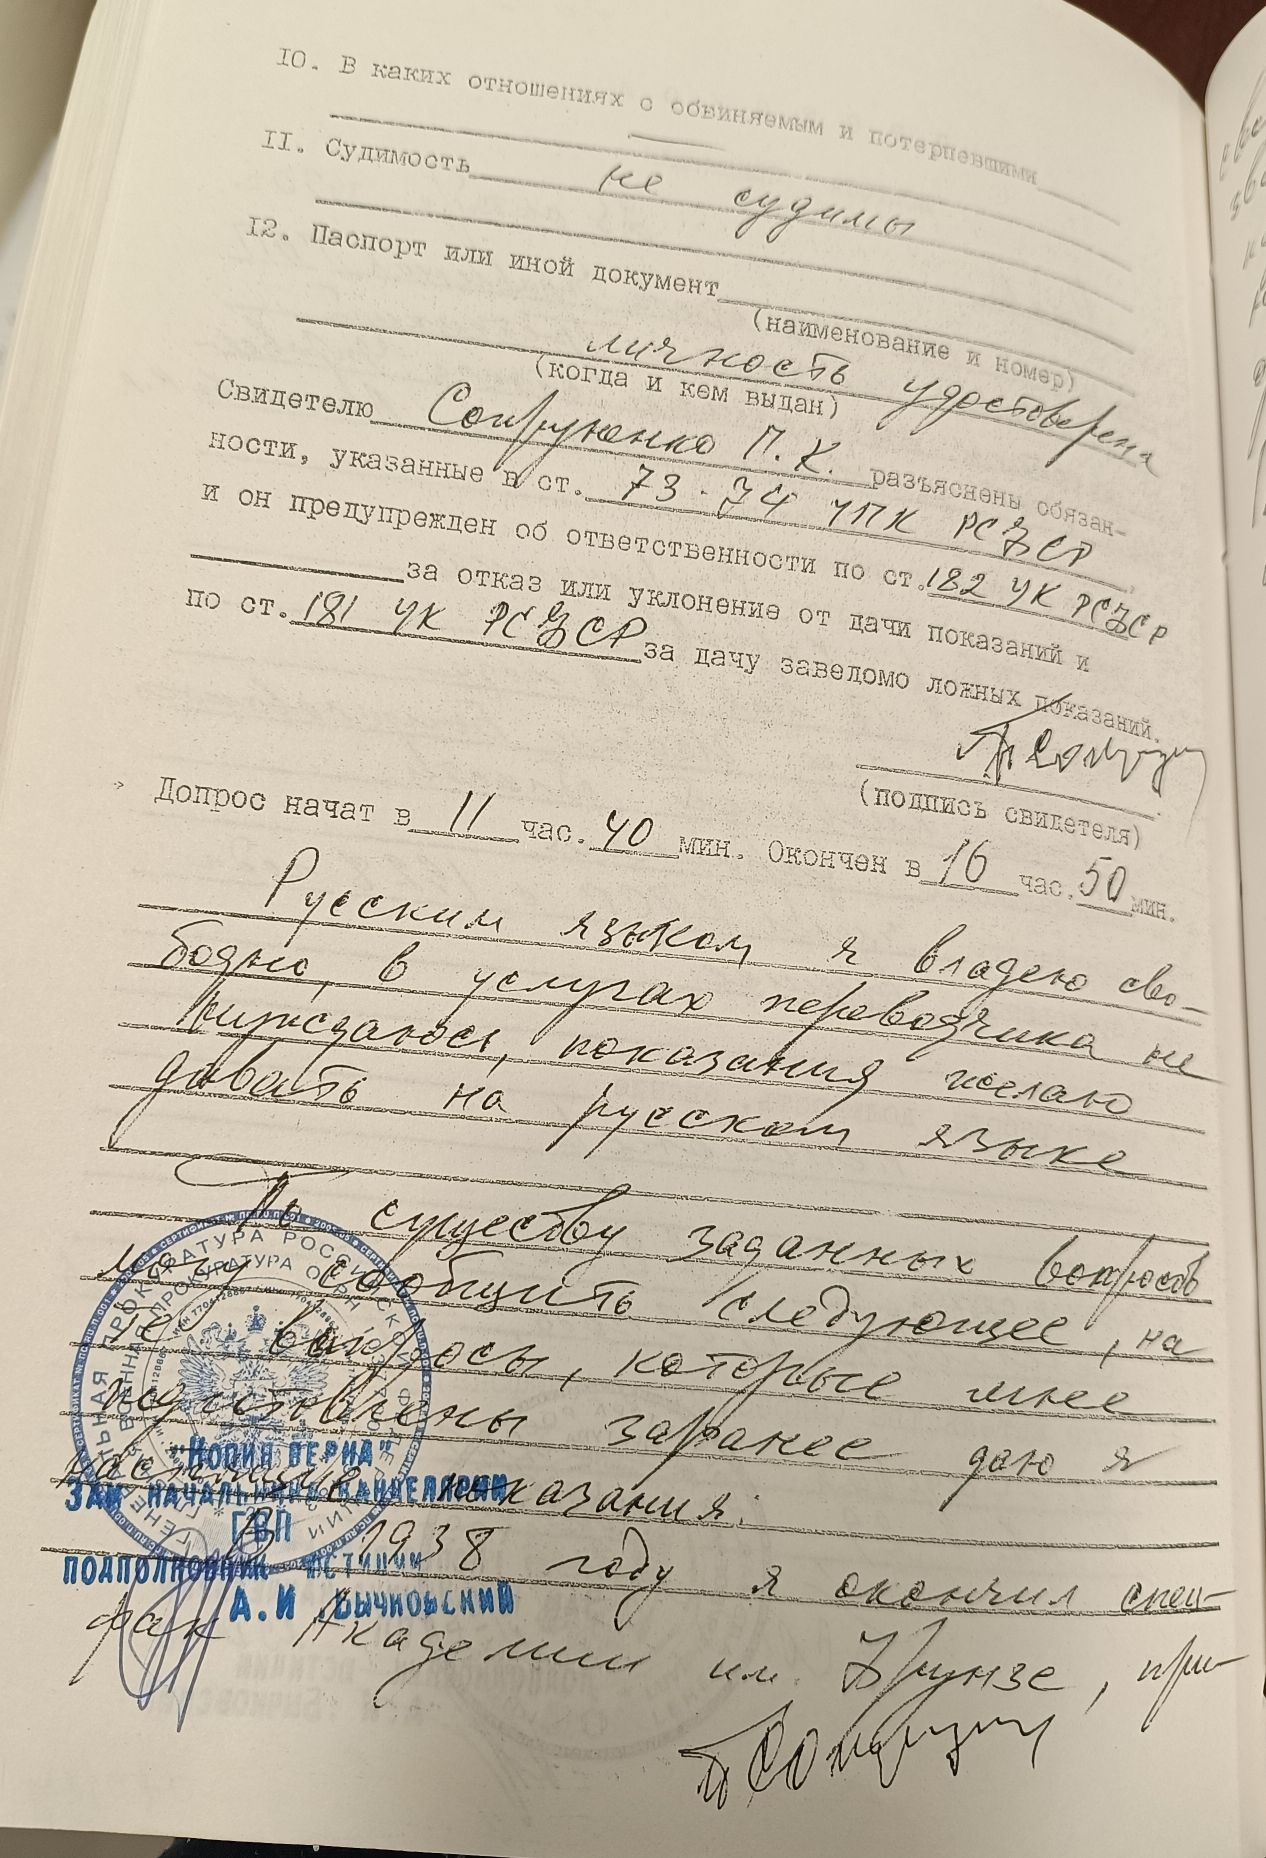 10. В каких отношениях с обвиняемым и потерпевшими
11. Судимость не судимы
12. Паспорт или иной документ
(наименование и номер)
личность удостоверена
(когда и кем выдан)
Свидетелю Сопруненко П.К. разъяснены обязан-
ности, указанные в ст. 73-74 УПК РСФСР
и он предупрежден об ответственности по ст. 182 УК РСФСР
за отказ или уклонение от дачи показаний и
по ст. 181 УК РСФСР за дачу заведомо ложных показаний.
(подпись свидетеля)
Допрос начат в 11 час. 40 мин. Окончен в 16 час. 50 мин.
Русским языком я владею сво-
бодно, в услугах переводчика не
нуждаюсь, показания желаю
давать на русском языке
По существу заданных вопросов
могу сообщить следующее, на
те вопросы, которые мне
поставлены заранее даю я
настоящие показания:
В 1938 году я окончил спец-
фак Академии им. Фрунзе, при-
"КОПИЯ ВЕРНА"
ЗАМ НАЧАЛЬНИКА КАНЦЕЛЯРИИ
ГВП
ПОДПОЛКОВНИК ЮСТИЦИИ
А.И. БЫЧКОВСКИЙ